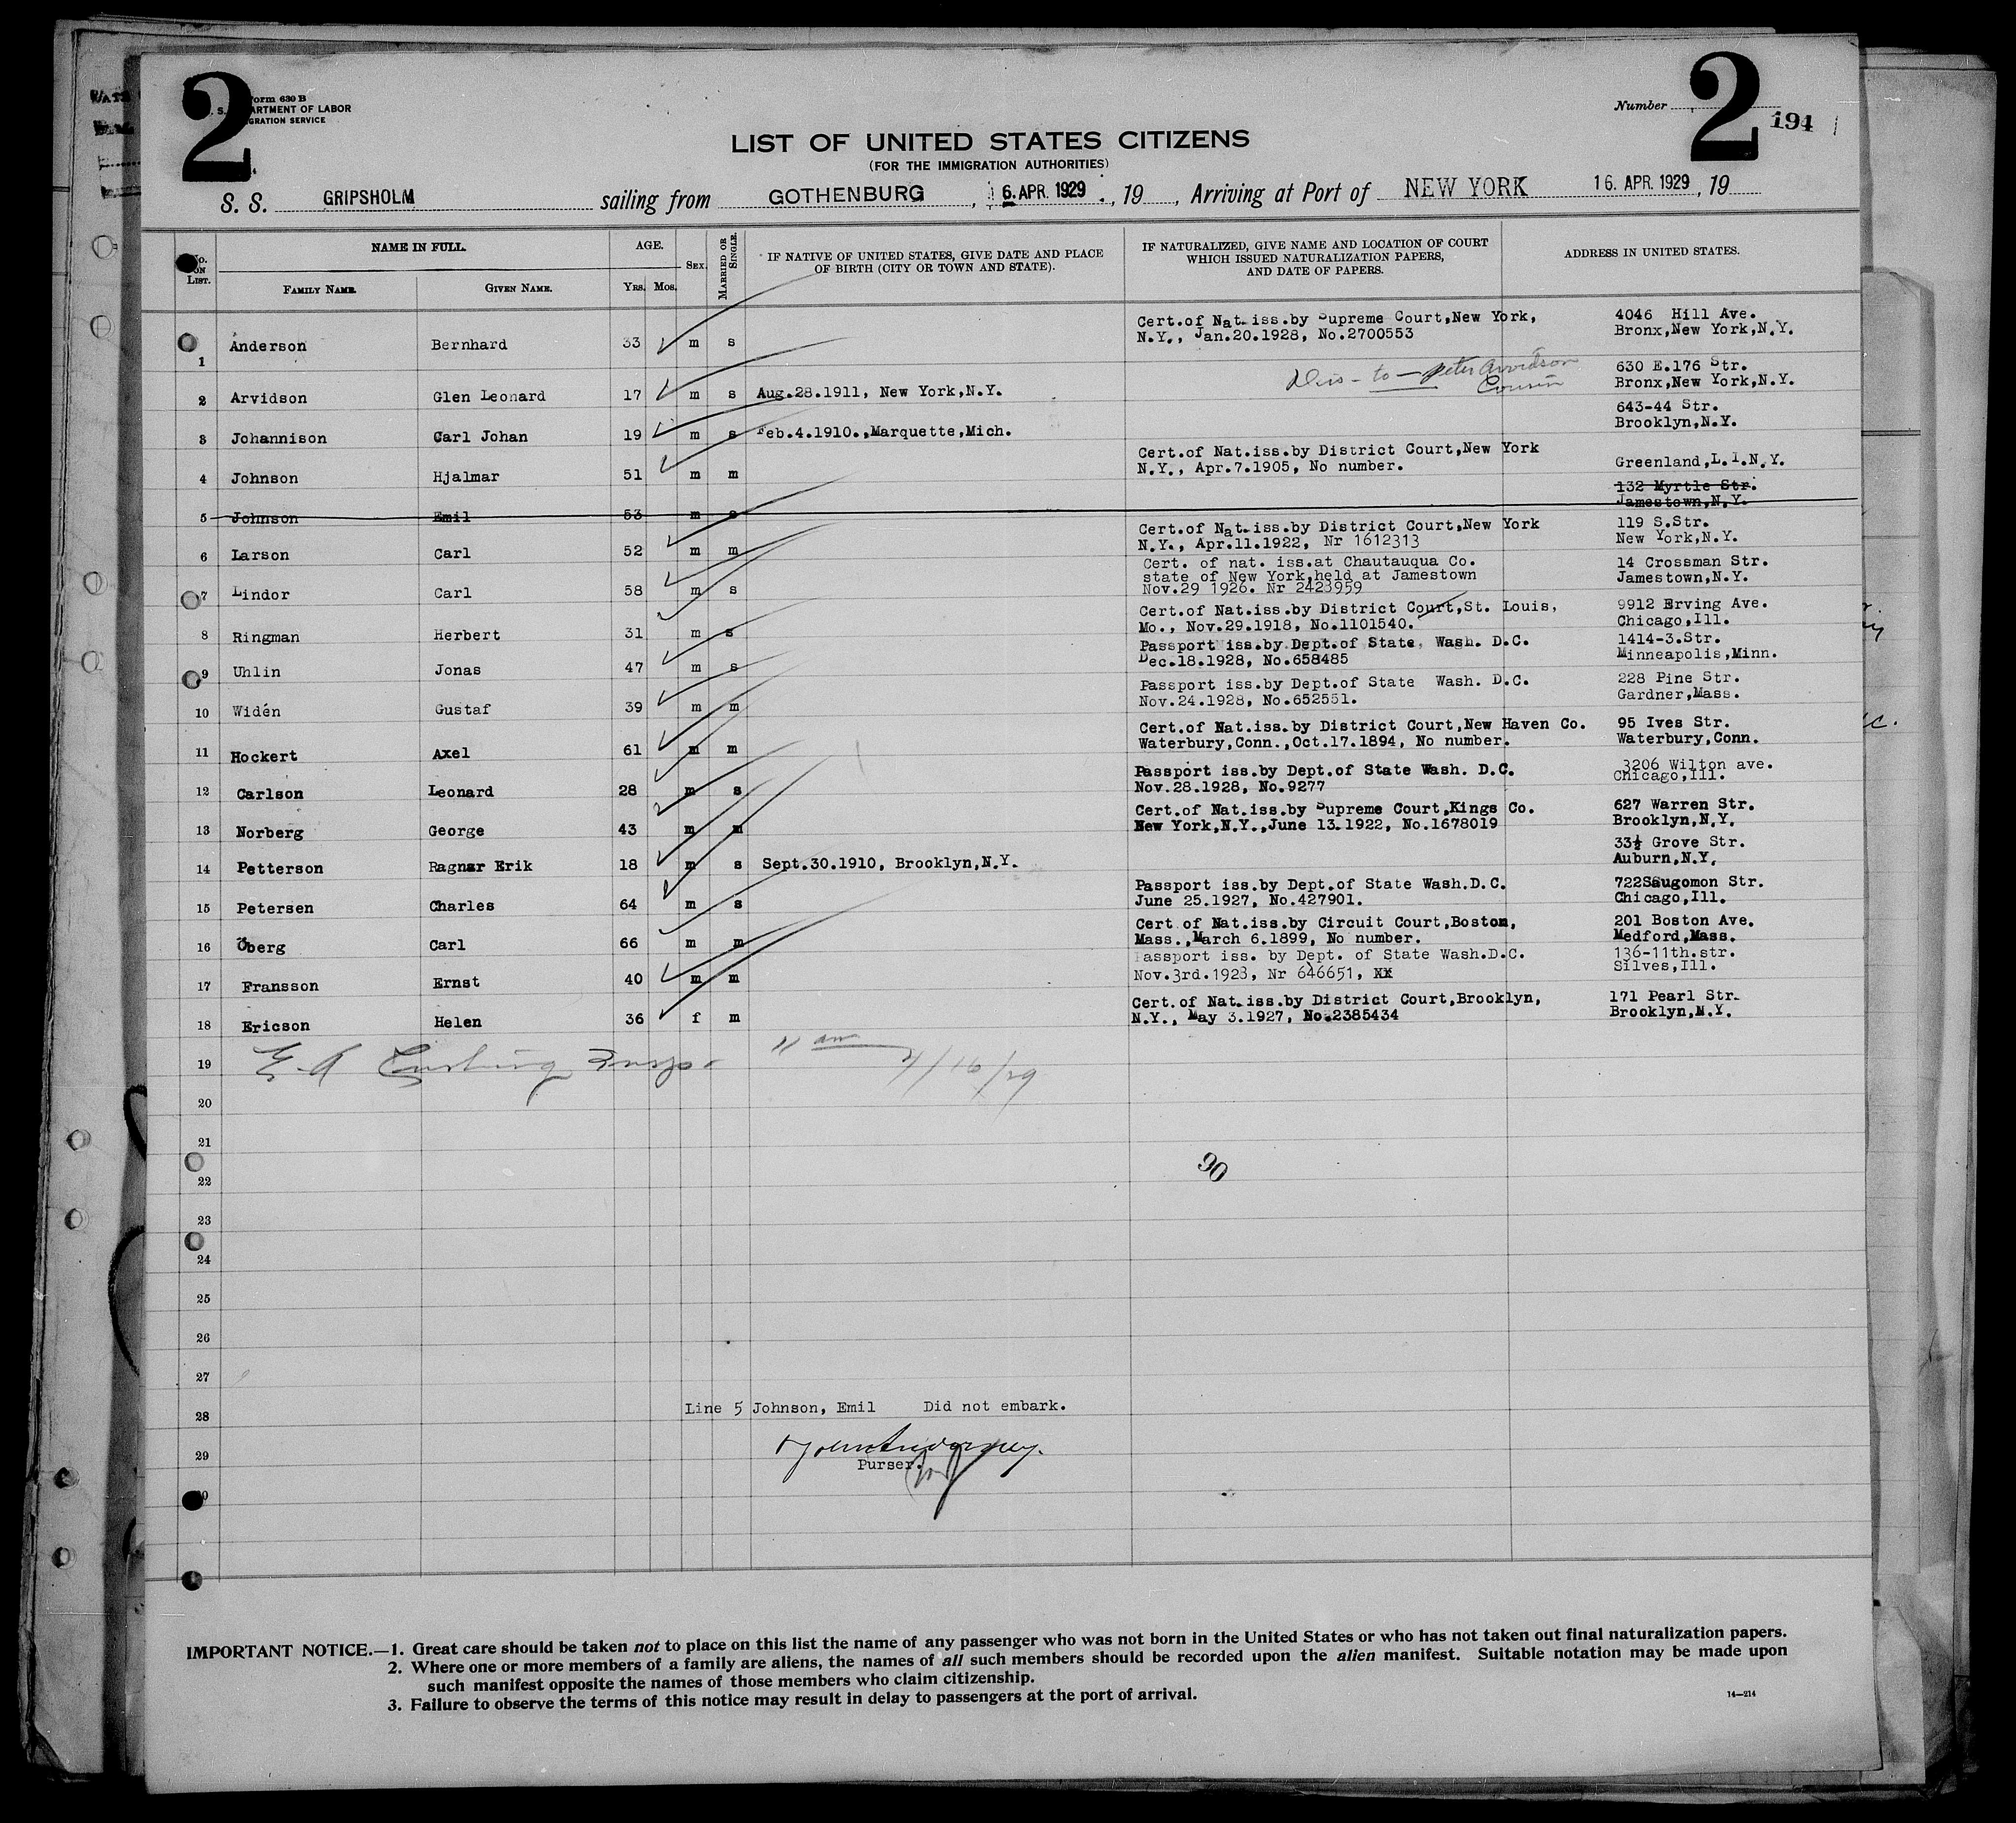 2
Form 630 B
DEPARTMENT OF LABOR
IMMIGRATION SERVICE
Number
2
194
LIST OF UNITED STATES CITIZENS
(FOR THE IMMIGRATION AUTHORITIES)
S. S. GRIPSHOLM sailing from GOTHENBURG, 6. APR. 1929, 19, Arriving at Port of NEW YORK 16. APR. 1929, 19
No. on List. NAME IN FULL. AGE. Sex. Married or Single. IF NATIVE OF UNITED STATES, GIVE DATE AND PLACE OF BIRTH (CITY OR TOWN AND STATE). IF NATURALIZED, GIVE NAME AND LOCATION OF COURT WHICH ISSUED NATURALIZATION PAPERS, AND DATE OF PAPERS. ADDRESS IN UNITED STATES.
Family Name. Given Name. Yrs. Mos.
1 Anderson Bernhard 33 m s Cert.of Nat.iss.by Supreme Court,New York, N.Y., Jan.20.1928, No.2700553 4046 Hill Ave. Bronx,New York,N.Y.
2 Arvidson Glen Leonard 17 m s Aug.28.1911, New York,N.Y. Dis - to - Peter Arvidson Cousin 630 E.176 Str. Bronx,New York,N.Y.
3 Johannison Carl Johan 19 m s Feb.4.1910.,Marquette,Mich. 643-44 Str. Brooklyn,N.Y.
4 Johnson Hjalmar 51 m m Cert.of Nat.iss.by District Court,New York N.Y., Apr.7.1905, No number. Greenland,L.I.N.Y.
5 Johnson Emil 53 m s 132 Myrtle Str. Jamestown,N.Y.
6 Larson Carl 52 m m Cert.of Nat.iss.by District Court,New York N.Y., Apr.11.1922, Nr 1612313 119 S.Str. New York,N.Y.
7 Lindor Carl 58 m s Cert. of nat. iss.at Chautauqua Co. state of New York,held at Jamestown Nov.29 1926. Nr 2423959 14 Crossman Str. Jamestown,N.Y.
8 Ringman Herbert 31 m s Cert.of Nat.iss.by District Court,St. Louis, Mo., Nov.29.1918, No.1101540. 9912 Erving Ave. Chicago,Ill.
9 Uhlin Jonas 47 m s Passport iss.by Dept.of State, Wash. D.C. Dec.18.1928, No.658485 1414-3.Str. Minneapolis,Minn.
10 Widén Gustaf 39 m m Passport iss.by Dept.of State Wash. D.C. Nov.24.1928, No.652551. 228 Pine Str. Gardner,Mass.
11 Hockert Axel 61 m m Cert.of Nat.iss.by District Court,New Haven Co. Waterbury,Conn.,Oct.17.1894, No number. 95 Ives Str. Waterbury,Conn.
12 Carlson Leonard 28 m s Passport iss.by Dept.of State Wash. D.C. Nov.28.1928, No.9277 3206 Wilton ave. Chicago,Ill.
13 Norberg George 43 m m Cert.of Nat.iss.by Supreme Court,Kings Co. New York,N.Y.,June 13.1922, No.1678019 627 Warren Str. Brooklyn,N.Y.
14 Petterson Ragnar Erik 18 m s Sept.30.1910, Brooklyn,N.Y. 33½ Grove Str. Auburn,N.Y.
15 Petersen Charles 64 m s Passport iss.by Dept.of State Wash.D.C. June 25.1927, No.427901. 722Saugomon Str. Chicago,Ill.
16 Öberg Carl 66 m m Cert.of Nat.iss.by Circuit Court,Boston, Mass.,March 6.1899, No number. 201 Boston Ave. Medford,Mass.
17 Fransson Ernst 40 m m Passport iss. by Dept. of State Wash.D.C. Nov.3rd.1928, Nr 646651, XX 136-11th.str. Silves,Ill.
18 Ericson Helen 36 f m Cert.of Nat.iss.by District Court,Brooklyn, N.Y., May 3.1927, No.2385434 171 Pearl Str. Brooklyn,N.Y.
19 E. A. Cushing Insp. 11 am 4/16/29
20
21
22
90
23
24
25
26
27
28 Line 5 Johnson, Emil Did not embark.
29
Purser.
30
IMPORTANT NOTICE.—1. Great care should be taken not to place on this list the name of any passenger who was not born in the United States or who has not taken out final naturalization papers.
2. Where one or more members of a family are aliens, the names of all such members should be recorded upon the alien manifest. Suitable notation may be made upon
such manifest opposite the names of those members who claim citizenship.
3. Failure to observe the terms of this notice may result in delay to passengers at the port of arrival.
14—214